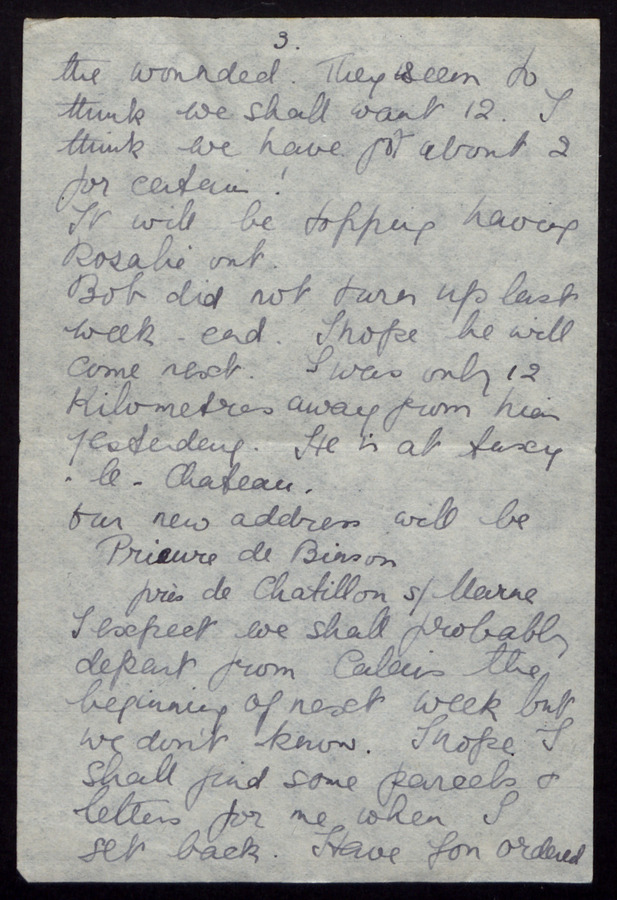 3.
the wounded. They seem to
think we shall want 12. I
think we have got about 2
for certain!
It will be topping having
Rosalie out.
Bob did not turn up last
week-end. I hope he will
come next. I was only 12
Kilometres away from him
yesterday. He is at
- le - Chateau.
Our new address will be
Prieure de Binson
près de Chatillon s/ Marne
I expect we shall probably
depart from Calais the
beginning of next week but
we don't know. I hope I
shall find some parcels &
letters for me when I
get back. Have you ordered